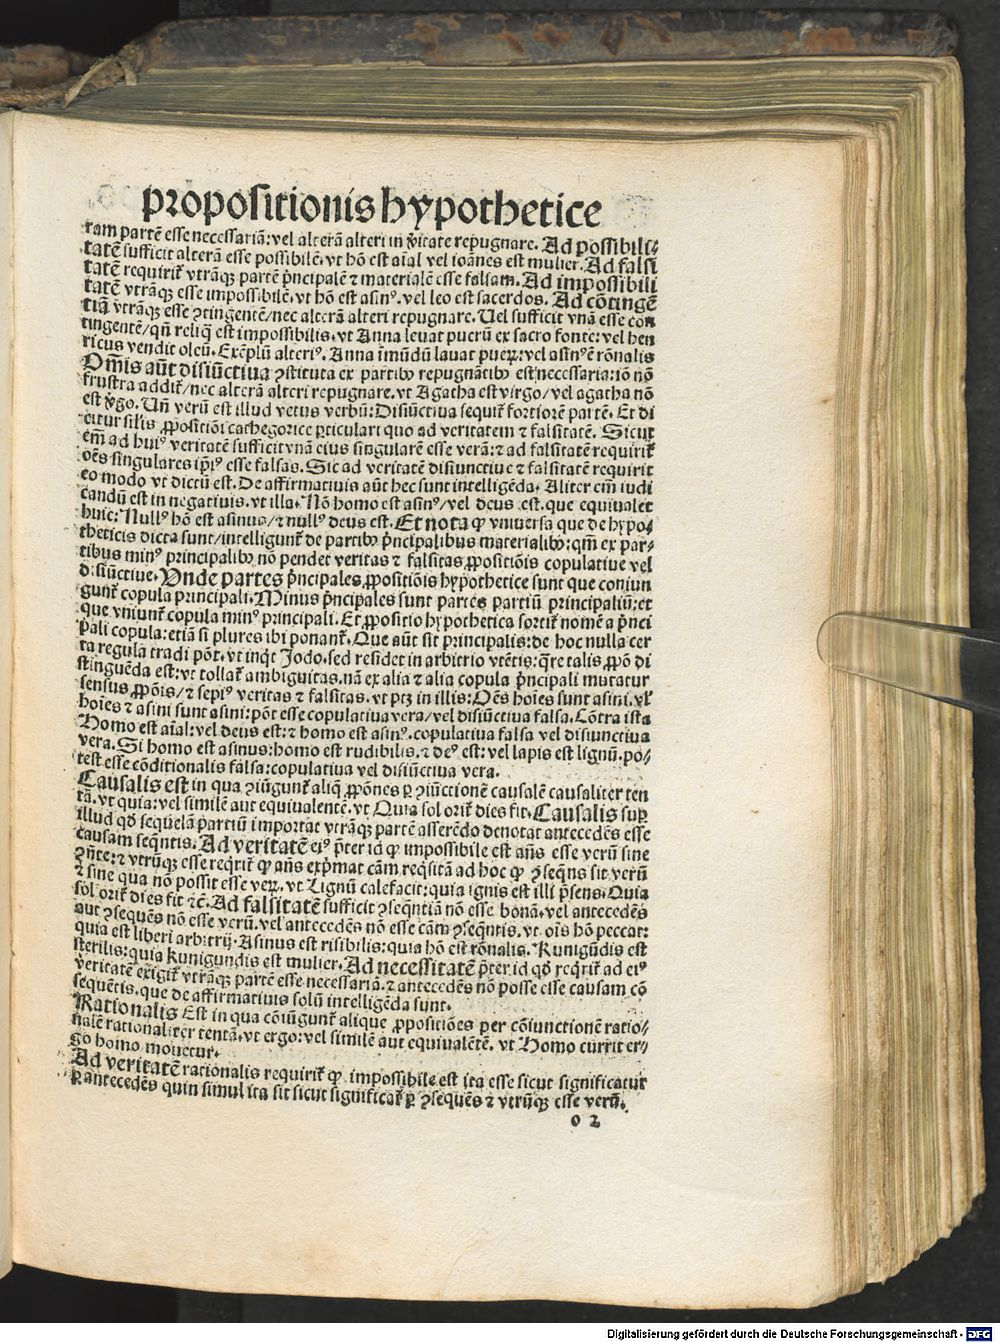 propositionis hypothetice
ram partē esse necessariā: vel alterā alteri in v̓itate repugnare. Ad possibili⸗
tatē sufficit alterā esse possibilē. vt hō est aīal vel ioānes est mulier. Ad falsi
tatē requirit̃ vtrāqꝫ partē p̓ncipalē ⁊ materialē esse falsam. Ad impossibili
tatē vtrāqꝫ esse impossibilē. vt hō est asinꝰ. vel leo est sacerdos. Ad cōtingē
tiā vtrāqꝫ esse ꝯtingentē/nec alterā alteri repugnare. Uel sufficit vnā esse con
tingentē/qn̄ reliq̄ est impossibilis. vt Anna leuat puerū ex sacro fonte: vel hen
ricus vendit oleū. Exēplū alteriꝰ. Anna īmūdū lauat pueꝝ: vel asīnꝰ ē rōnalis
Om̄is aūt disiūctiua ꝯstituta ex partibꝰ repugnātibꝰ est necessaria: iō nō
frustra addit̃/nec alterā alteri repugnare. vt Agatha est virgo/vel agatha nō
est v̓go. Un̄ verū est illud vetus verbū: Disiūctiua sequit̃ fortiorē partē. Et di
citur silis ꝓpositiōi cathegorice ꝑticulari quo ad veritatem ⁊ falsitatē. Sicut
em̄ ad huiꝰ veritatē sufficit vnā eius singularē esse verā: ⁊ ad falsitatē requirit̃
oēs singulares ip̄iꝰ esse falsas. Sic ad veritatē disiunctiue ⁊ falsitatē requirit
eo modo vt dictū est. De affirmatiuis aūt hec sunt intelligēda. Aliter em̄ iudi
candū est in negatiuis. vt illa. Nō homo est asinꝰ/ vel deus est. que equiualet
huic: Nullꝰ hō est asinus/⁊ nullꝰ deus est. Et nota ꝙ vniuersa que de hypo⸗
theticis dicta sunt/intelligunt̃ de partibꝰ p̓ncipalibus materialibꝰ: qm̄ ex par⸗
tibus minꝰ principalibꝰ nō pendet veritas ⁊ falsitas ꝓpositiōis copulatiue vel
disiūctiue. Unde partes p̓ncipales ꝓpositiōis hypothetice sunt que coniun
gunt̃ copula principali. Minus p̓ncipales sunt partes partiū principaliū: et
que vniunt̃ copula minꝰ principali. Et ꝓpositio hypothetica sortit̃ nomē a p̓nci
pali copula: etiā si plures ibi ponant̃. Que aūt sit principalis: de hoc nulla cer
ta regula tradi pōt. vt inq̇t Jodo. sed residet in arbitrio vtētis: q̄re talis ꝓpō di
stinguēda est: vt tollat̃ ambiguitas. nā ex alia ⁊ alia copula p̓ncipali mutatur
sensus ꝓpōis/⁊ sepiꝰ veritas ⁊ falsitas. vt ptꝫ in illis: Oēs hoīes sunt asini. vl̓
hoīes ⁊ asini sunt asini: pōt esse copulatiua vera/vel disiūctiua falsa. Cōtra ista
Homo est aīal: vel deus est: ⁊ homo est asinꝰ. copulatiua falsa vel disiunctiua
vera. Si homo est asinus: homo est rudibilis. ⁊ deꝰ est: vel lapis est lignū. po⸗
test esse cōditionalis falsa: copulatiua vel disiūctiua vera.
Causalis est in qua ꝯiūgunt̃ aliq̄ ꝓpōnes ꝑ ꝯiūctionē causalē causaliter ten
tā. vt quia: vel similē aut equiualentē. vt Quia sol orit̃ dies fit. Causalis suꝑ
illud qd̓ seq̄uelā partiū importat vtrāqꝫ partē asserēdo denotat antecedēs esse
causam seq̄ntis. Ad veritatē eiꝰ p̄ter id ꝙ impossibile est an̄s esse verū sine
ꝯn̄te: ⁊ vtrūqꝫ esse req̇rit̃ ꝙ an̄s exp̓mat cām req̇sitā ad hoc ꝙ ꝯseq̄ns sit verū
⁊ sine qua nō possit esse veꝝ. vt Lignū calefacit: quia ignis est illi p̄sens. Quia
sol orit̃ dies fit ⁊c̄. Ad falsitatē sufficit ꝯseq̄ntiā nō esse bonā. vel antecedēs
aut ꝯsequēs nō esse verū. vel antecedēs nō esse cām ꝯseq̄ntis. vt oīs hō peccat:
quia est liberi arbitrij. Asinus est risibilis: quia hō est rōnalis. Kunigūdis est
sterilis: quia kunigundis est mulier. Ad necessitatē p̄ter id qd̓ req̇rit̃ ad eiꝰ
veritatē exigit̃ vtrāqꝫ partē esse necessariā. ⁊ antecedēs nō posse esse causam cō
sequētis. que de affirmatiuis solū intelligēda sunt.
Rationalis Est in qua cōiūgunt̃ alique ꝓpositiōes per cōiunctionē ratio⸗
nalē rationaliter tentā. vt ergo: vel similē aut equiualētē. vt Homo currit er⸗
go homo mouetur.
Ad veritatē rationalis requirit̃ ꝙ impossibile est ita esse sicut significatur
ꝑ antecedēs quin simul ita sit sicut significat̃ ꝑ ꝯsequēs ⁊ vtrūqꝫ esse verū.
o 2
Digitalisierung gefördert durch die Deutsche Forschungsgemeinschaft - DFG